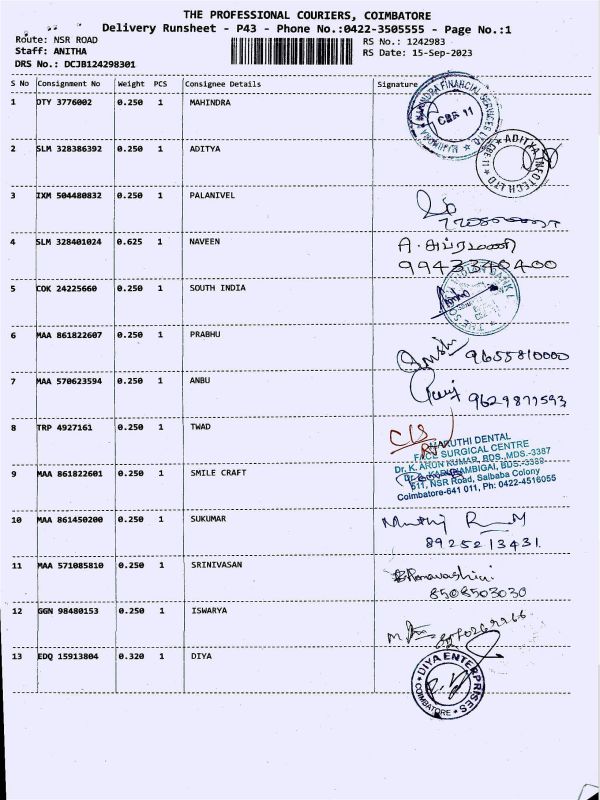 THE PROFESSIONAL COURIERS, COIMBATORE
Delivery Runsheet - P43 - Phone No.:0422-3505555 - Page No.:1
Route: NSR ROAD
RS No.: 1242983
Staff: ANITHA
RS Date: 15-Sep-2023
DRS No.: DCJB124298301
S No Consignment No Weight PCS Consignee Details Signature
1 DTY 3776002 0.250 1 MAHINDRA
MAHINDRA FINANCIAL SERVICES LTD
CBE 11
2 SLM 328386392 0.250 1 ADITYA
ADITYA INFOTECH LTD
CBE-11
3 IXM 504480832 0.250 1 PALANIVEL
4 SLM 328401024 0.625 1 NAVEEN
9943340400
5 COK 24225660 0.250 1 SOUTH INDIA
6 MAA 861822607 0.250 1 PRABHU
9655810000
7 MAA 570623594 0.250 1 ANBU
9629877593
8 TRP 4927161 0.250 1 TWAD
MARUTHI DENTAL
FACE SURGICAL CENTRE
Dr. K. ARUN KUMAR, BDS.,MDS.-3387
9 MAA 861822601 0.250 1 SMILE CRAFT
KARUPAMBIGAI, BDS.-3389
511, NSR Road, Saibaba Colony
Coimbatore-641 011, Ph: 0422-4516055
10 MAA 861450200 0.250 1 SUKUMAR
8925213431
11 MAA 571085810 0.250 1 SRINIVASAN
8508503030
12 GGN 98480153 0.250 1 ISWARYA
13 EDQ 15913804 0.320 1 DIYA
DIYA ENTERPRISES
COIMBATORE